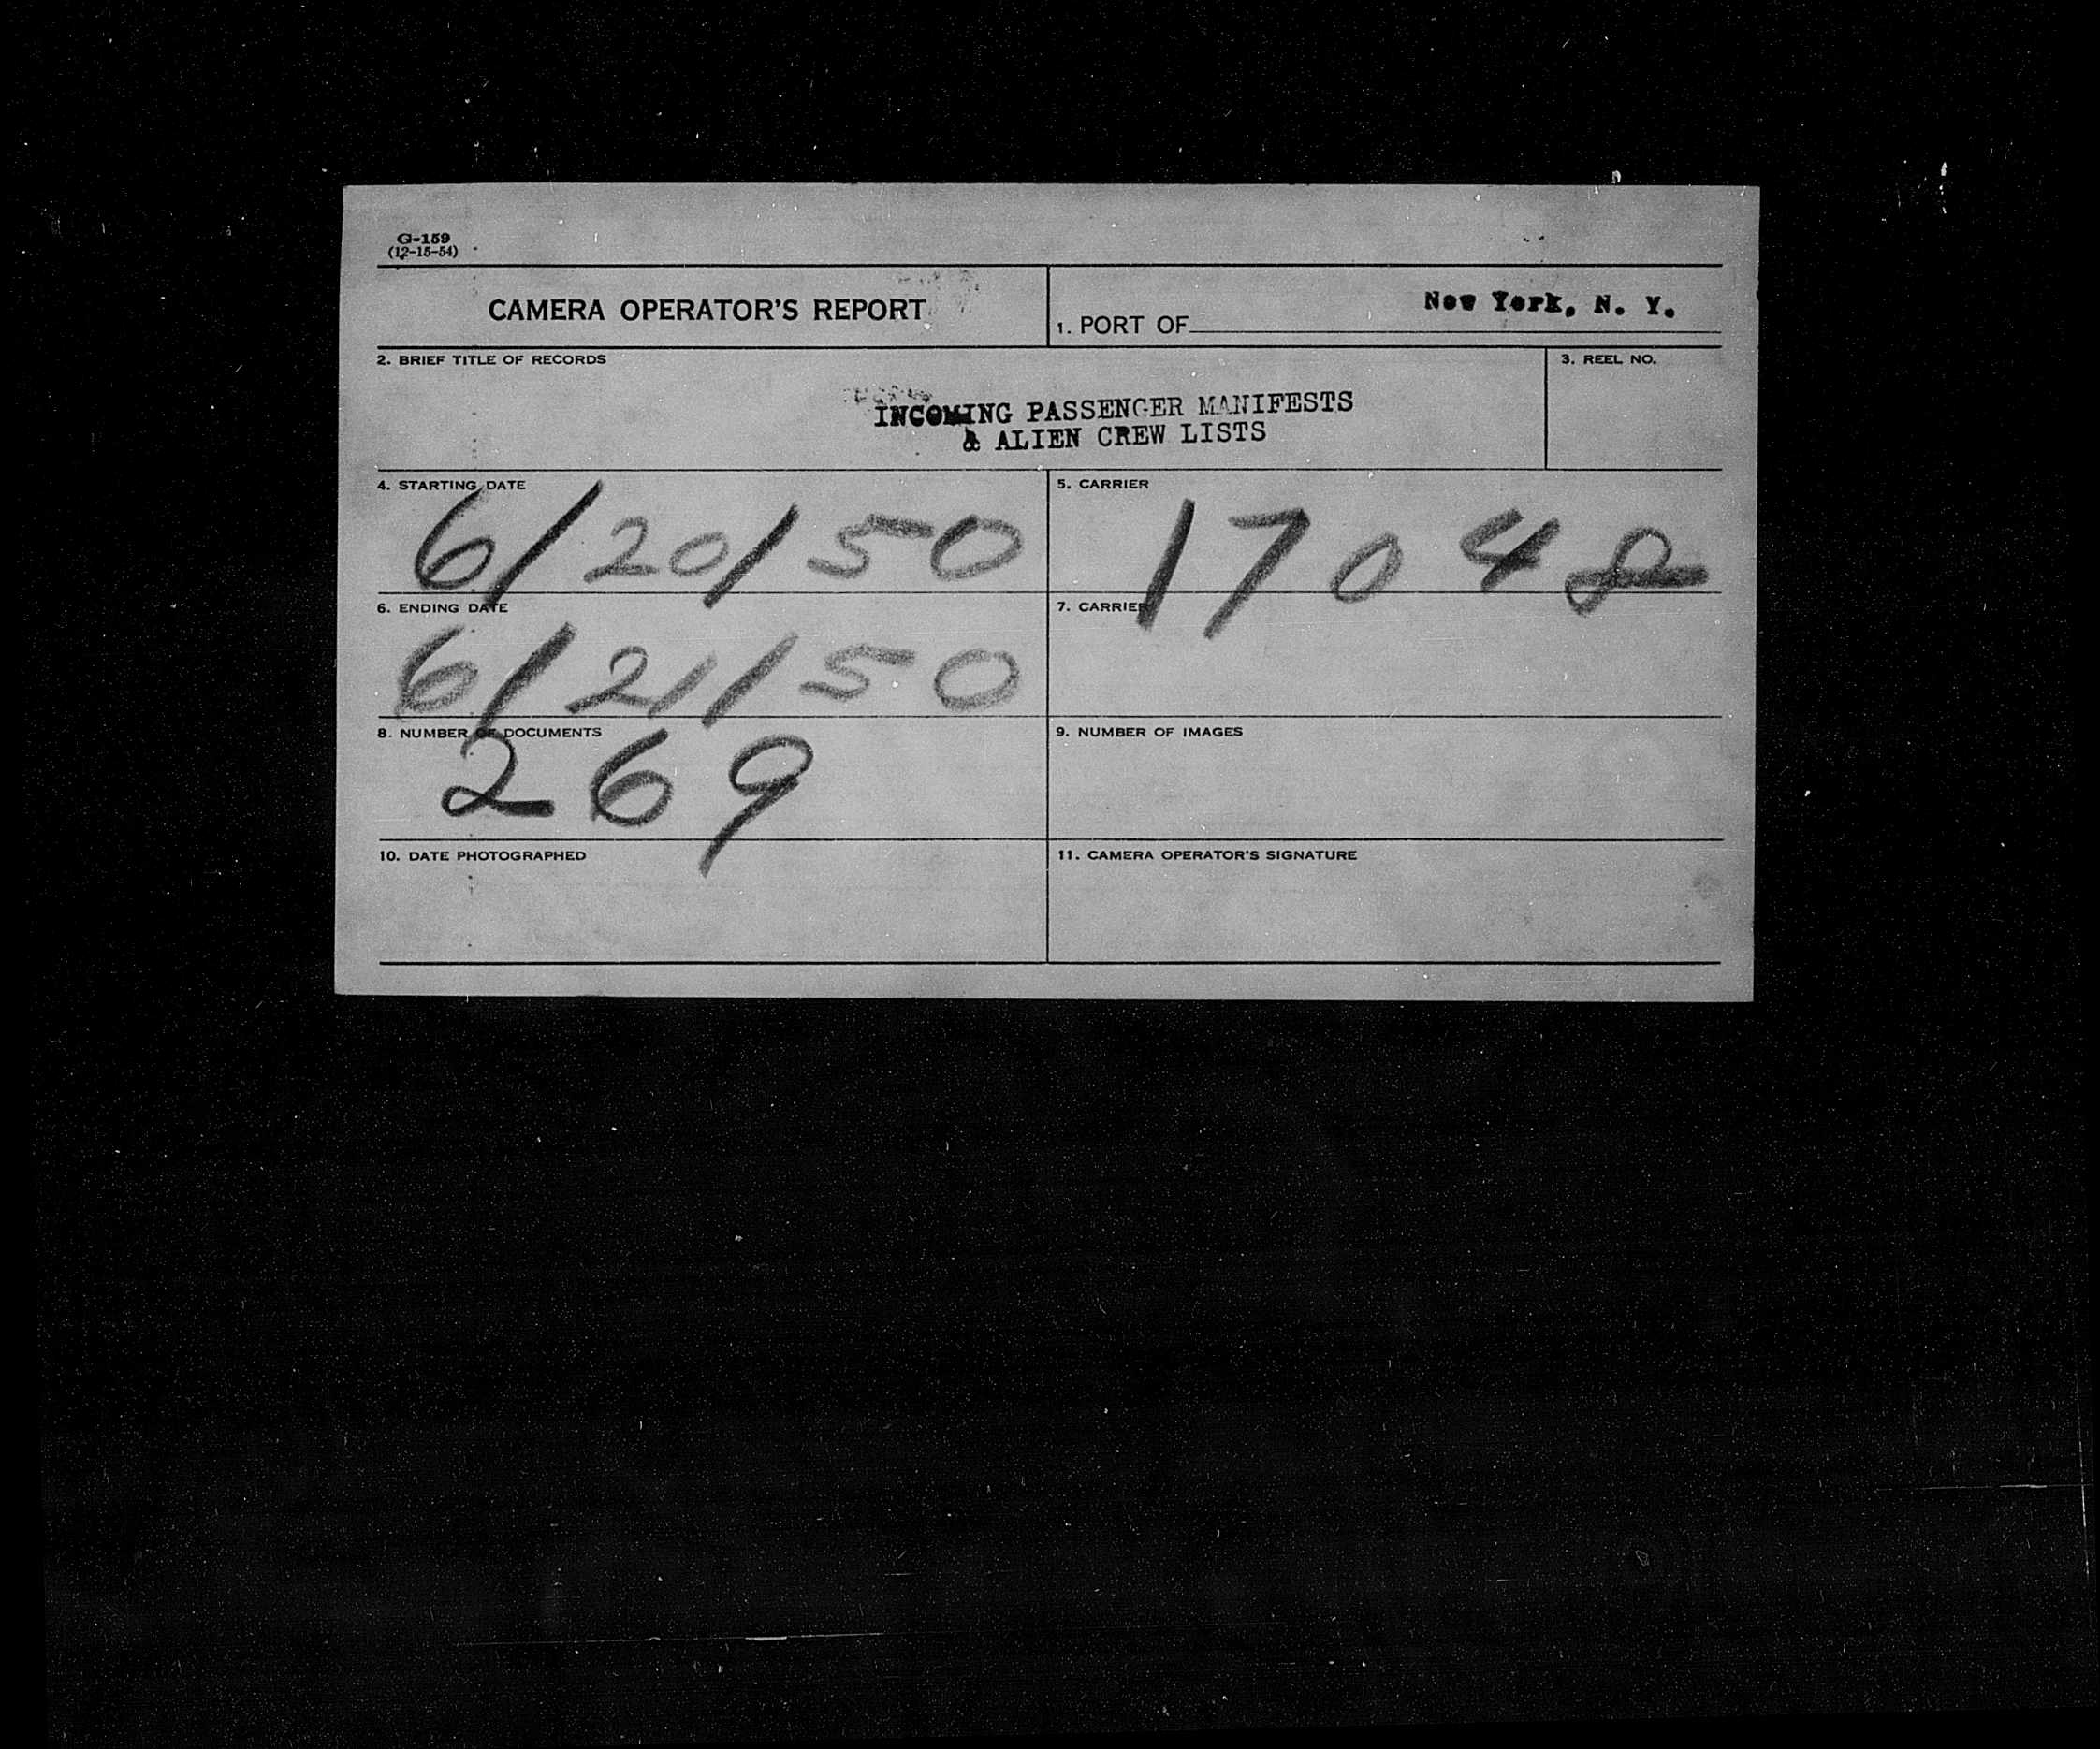 G-159
(12-15-54)
CAMERA OPERATOR'S REPORT
1. PORT OF New York, N. Y.
2. BRIEF TITLE OF RECORDS
3. REEL NO.
INCOMING PASSENGER MANIFESTS
& ALIEN CREW LISTS
4. STARTING DATE
6/20/50
5. CARRIER
17048
6. ENDING DATE
6/21/50
7. CARRIER
8. NUMBER OF DOCUMENTS
269
9. NUMBER OF IMAGES
10. DATE PHOTOGRAPHED
11. CAMERA OPERATOR'S SIGNATURE